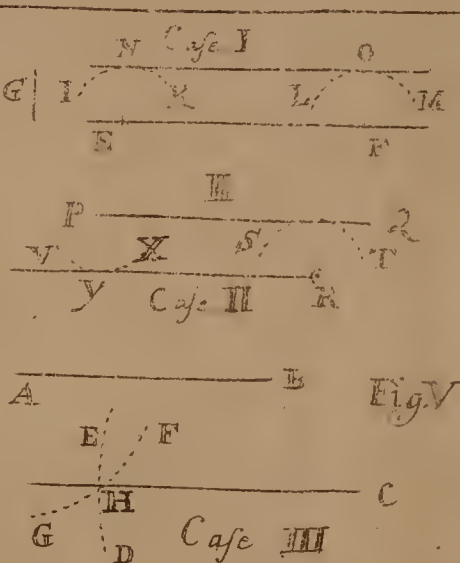 N Caſe I O
G I K L M
E F
III
P Q
V X S T
Y Caſe II R
A B Fig.V
E F
H C
G D Caſe III